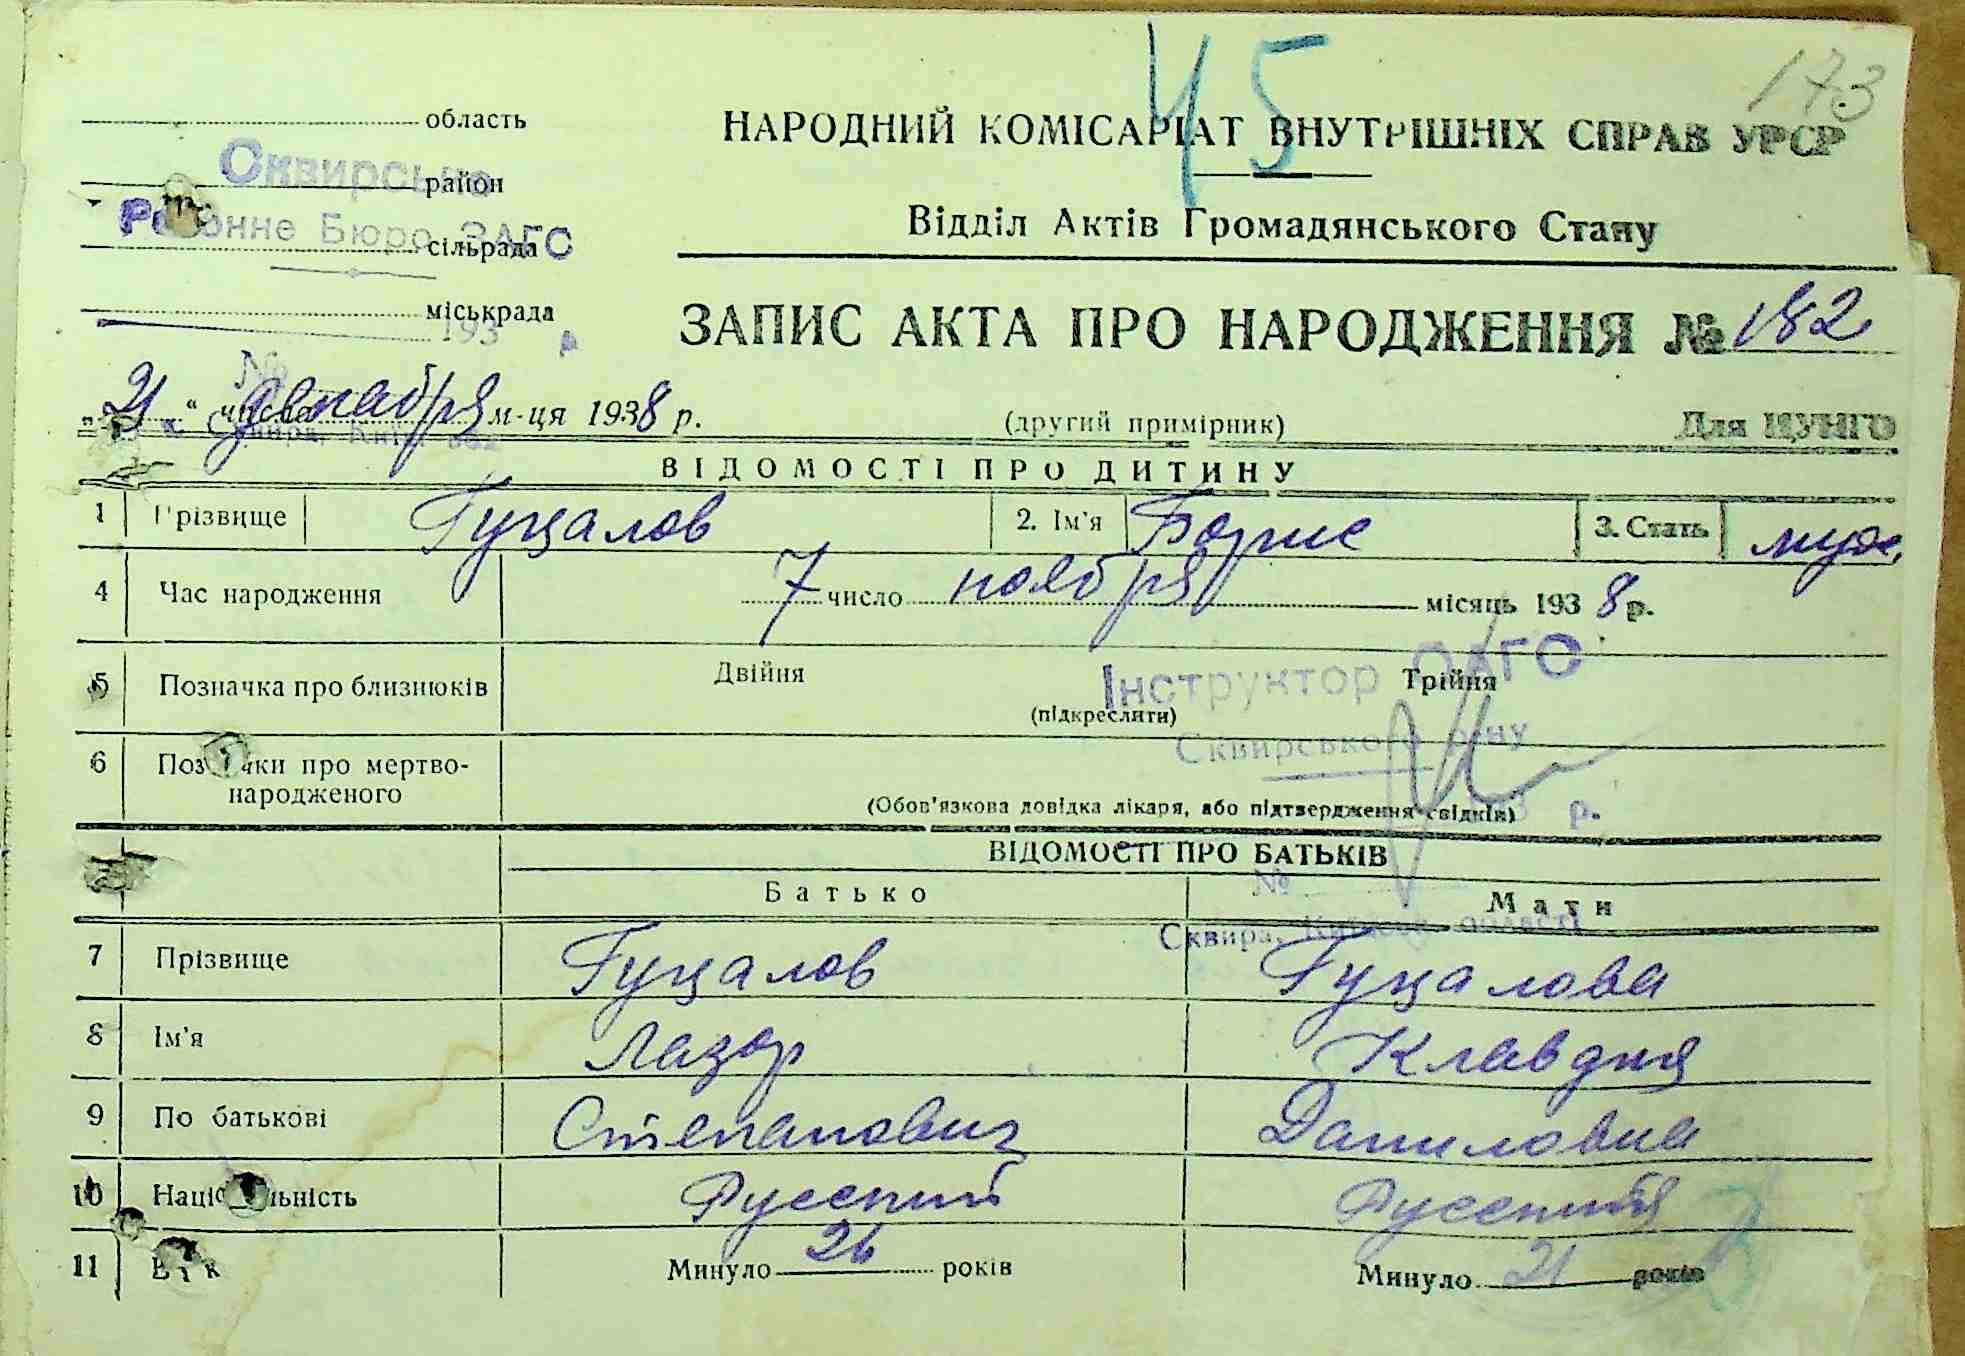 45
173
область
НАРОДНИЙ КОМІСАРІАТ ВНУТРІШНІХ СПРАВ УРСР
Сквирське
район
Районне Бюро ЗАГС
сільрада
Відділ Актів Громадянського Стану
міськрада
193 р
ЗАПИС АКТА ПРО НАРОДЖЕННЯ № 182
№
„21“ числа декабря м-ця 1938 р.
(другий примірник)
Для ЦУНГО
м. Сквира, Київ. обл.
ВІДОМОСТІ ПРО ДИТИНУ
1 Прізвище Гуцалов 2. Ім'я Борис 3. Стать муж.
4 Час народження 7 число ноября місяць 1938 р.
5 Позначка про близнюків Двійня Трійня
Інструктор ОАГС
(підкреслити)
Сквирського р-ну
6 Позначки про мертво-
народженого
(Обов'язкова довідка лікаря, або підтвердження свідків)
193 р.
ВІДОМОСТІ ПРО БАТЬКІВ
№
Батько Мати
Сквира, Київськ. області
7 Прізвище Гуцалов Гуцалова
8 Ім'я Лазар Клавдия
9 По батькові Степанович Даниловна
10 Національність Русский Русский
11 Вік Минуло 26 років Минуло 21 років